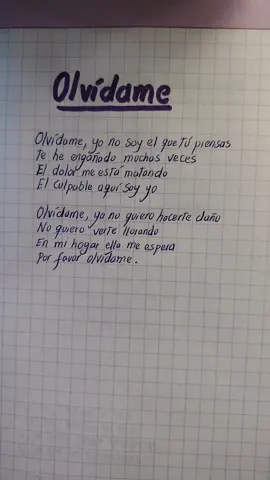 Olvídame
Olvídame, yo no soy el que tú piensas
Te he engañado muchas veces
El dolor me está matando
El culpable aquí soy yo
Olvídame, ya no quiero hacerte daño
No quiero verte llorando
En mi hogar ella me espera
Por favor olvídame.